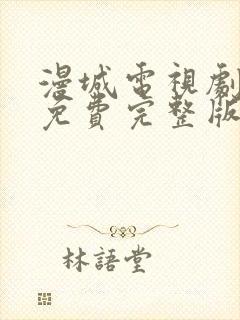 漫城電視劇
免費完整版
林語堂